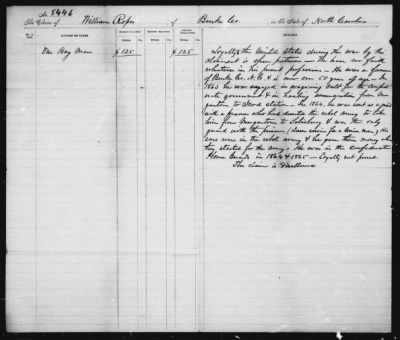 No. 8446
The Claim of William Roper, of Burke Co., in the State of North Carolina
NATURE OF CLAIM.
AMOUNT CLAIMED.
AMOUNT ALLOWED.
AMOUNT DISALLOWED.
REMARKS.
Dollars. Cts. Dollars. Cts. Dollars. Cts.
One Bay Mare $125 $125
Loyalty to the United States during the war by the
claimant is given
whatever in his present professions – He was a farmer
of Burke Co. N.C. & is now over 50 years of age – In
1863 he was engaged in wagoning salt for the Confed-
erate government & in hauling ammunition from Mor-
ganton to Head station – In 1864, he was sent as a guard
with a prisoner who had deserted the rebel army to take
him from Morganton to Salisbury & was the only
guard with the prisoner (
sons were in the rebel army & he gave them money when
they started for the army. He was in the Confederate
Home Guards in 1864 & 1865 – Loyalty not found
The Claim is disallowed